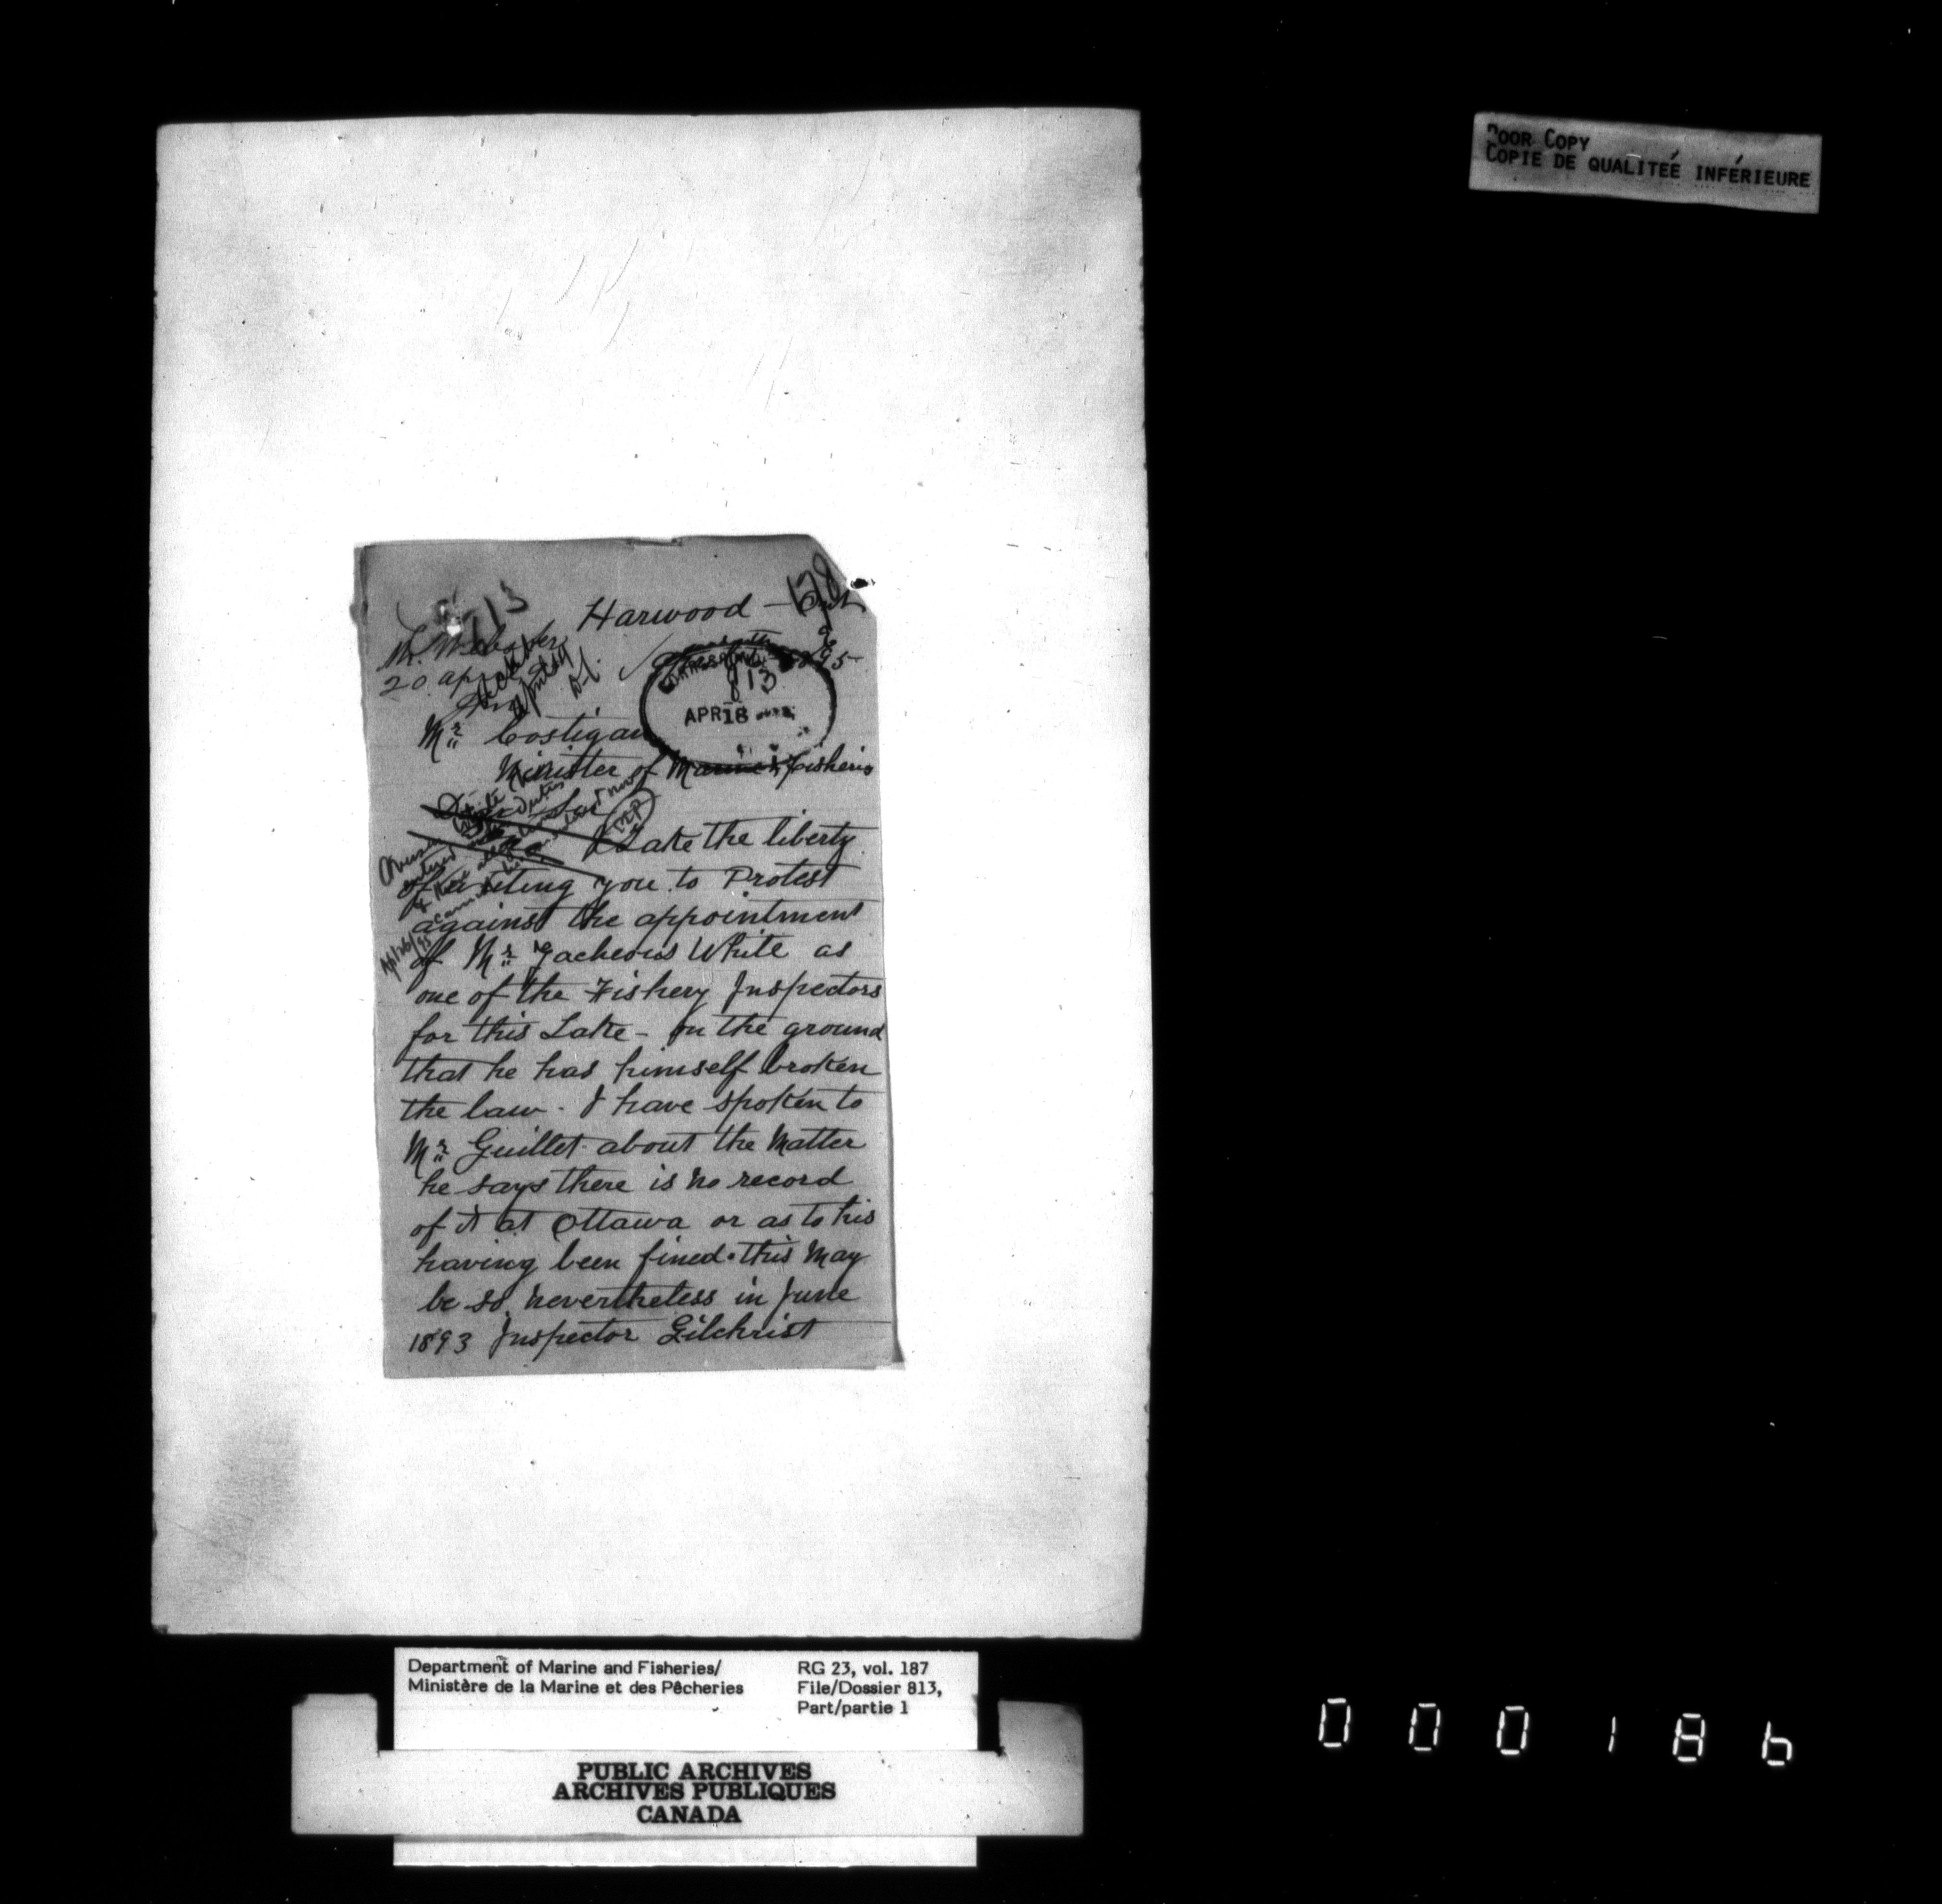 POOR COPY
COPIE DE QUALITEÉ INFÉRIEURE
178
813
Harwood - Ont
Mr. Webster
20 Apr
1895
813
APR 18
Mr. Costigan
Minister of Marine & Fisheries
Dear Sir
I take the liberty
of writing you to Protest
against the appointment
of Mr. Zacheous White as
one of the Fishery Inspectors
for this Lake - on the ground
that he has himself broken
the law. I have spoken to
Mr. Guillet about the Matter
he says there is no record
of it at Ottawa or as to his
having been fined. this May
be so. nevertheless in June
1893 Inspector Gilchrist
Department of Marine and Fisheries/
Ministère de la Marine et des Pêcheries
RG 23, vol. 187
File/Dossier 813,
Part/partie 1
PUBLIC ARCHIVES
ARCHIVES PUBLIQUES
CANADA
000186